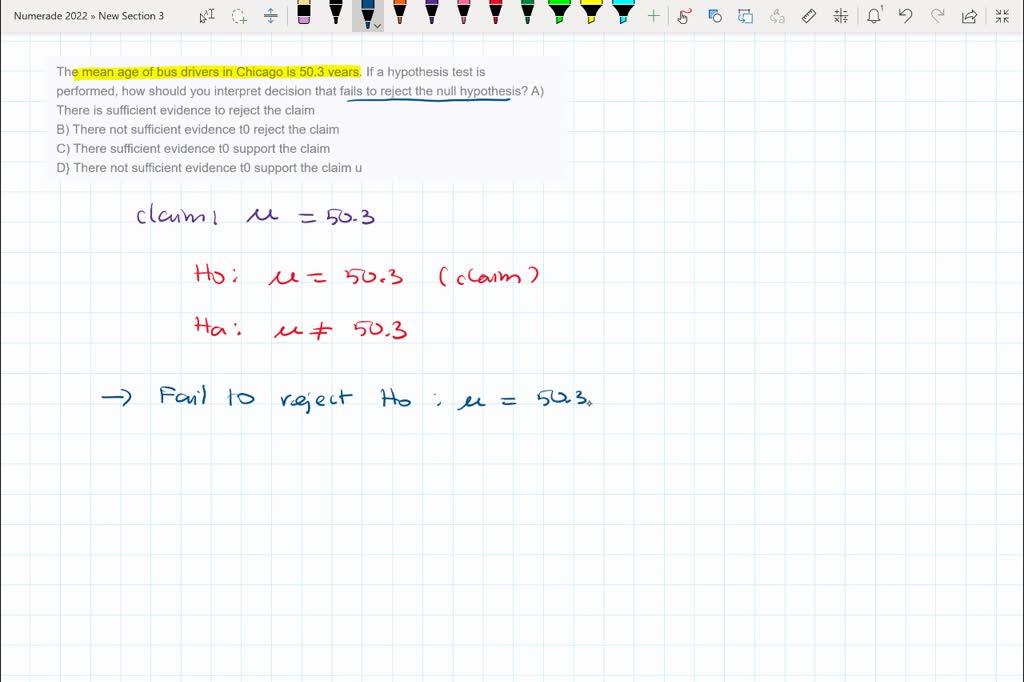 Numerade 2022 » New Section 3
The mean age of bus drivers in Chicago is 50.3 vears. If a hypothesis test is
performed, how should you interpret decision that fails to reject the null hypothesis? A)
There is sufficient evidence to reject the claim
B) There not sufficient evidence t0 reject the claim
C) There sufficient evidence t0 support the claim
D} There not sufficient evidence t0 support the claim u
claim: μ = 50.3
Ho: μ = 50.3 (claim)
Ha: μ ≠ 50.3
→ Fail to reject Ho : μ = 50.3